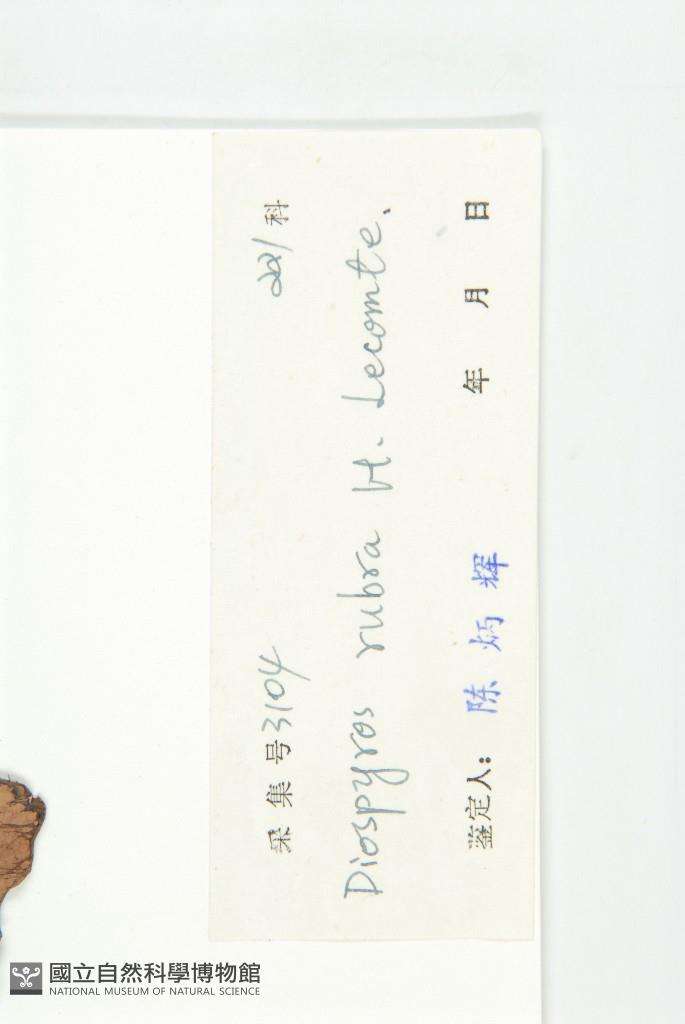 采集号3104 221科
Diospyros rubra H. Lecomte.
鉴定人: 陈炳辉 年 月 日
國立自然科學博物館
NATIONAL MUSEUM OF NATURAL SCIENCE